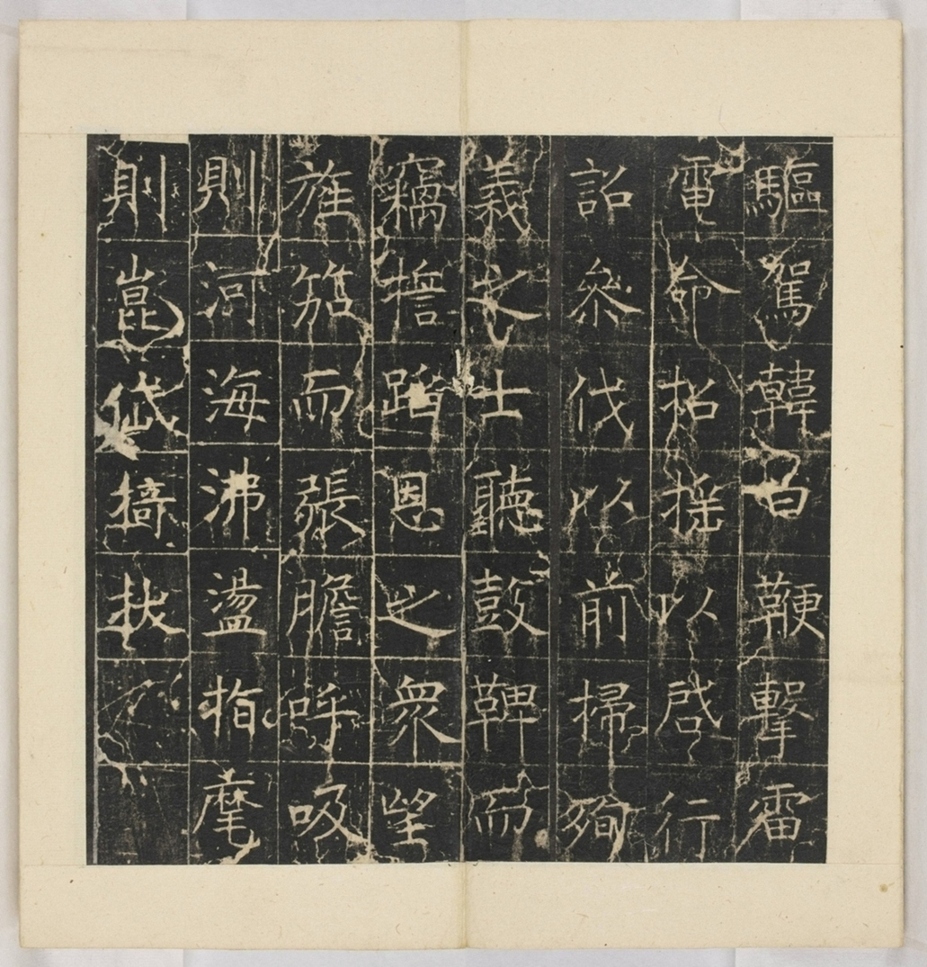 驅駕韓白鞭擊雷
電命招搖以啓行
詔參伐以前掃殉
義之士聽鼓鞞而
竊 蹈恩之衆望
旌笳而張膽呼吸
則河海沸盪指麾
則崑岱掎拔